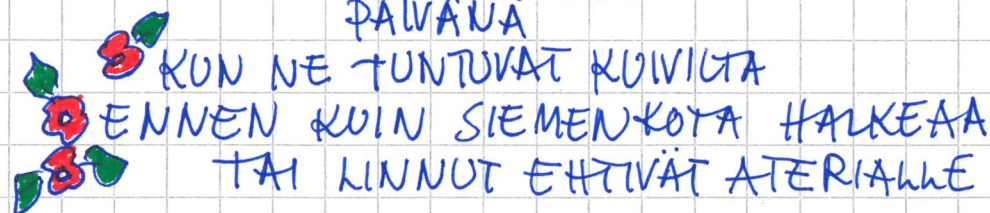 PÄIVÄNÄ
KUN NE TUNTUVAT KUIVILTA
ENNEN KUIN SIEMENKOTA HALKEAA
TAI LINNUT EHTIVÄT ATERIALLE